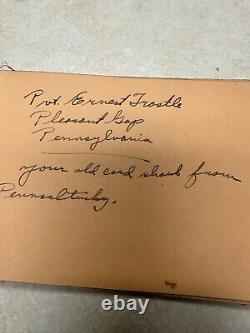 Pvt. Ernest Trostle
Pleasant Gap
Pennsylvania
your old card shark from
Pennsaltucky.
ebay